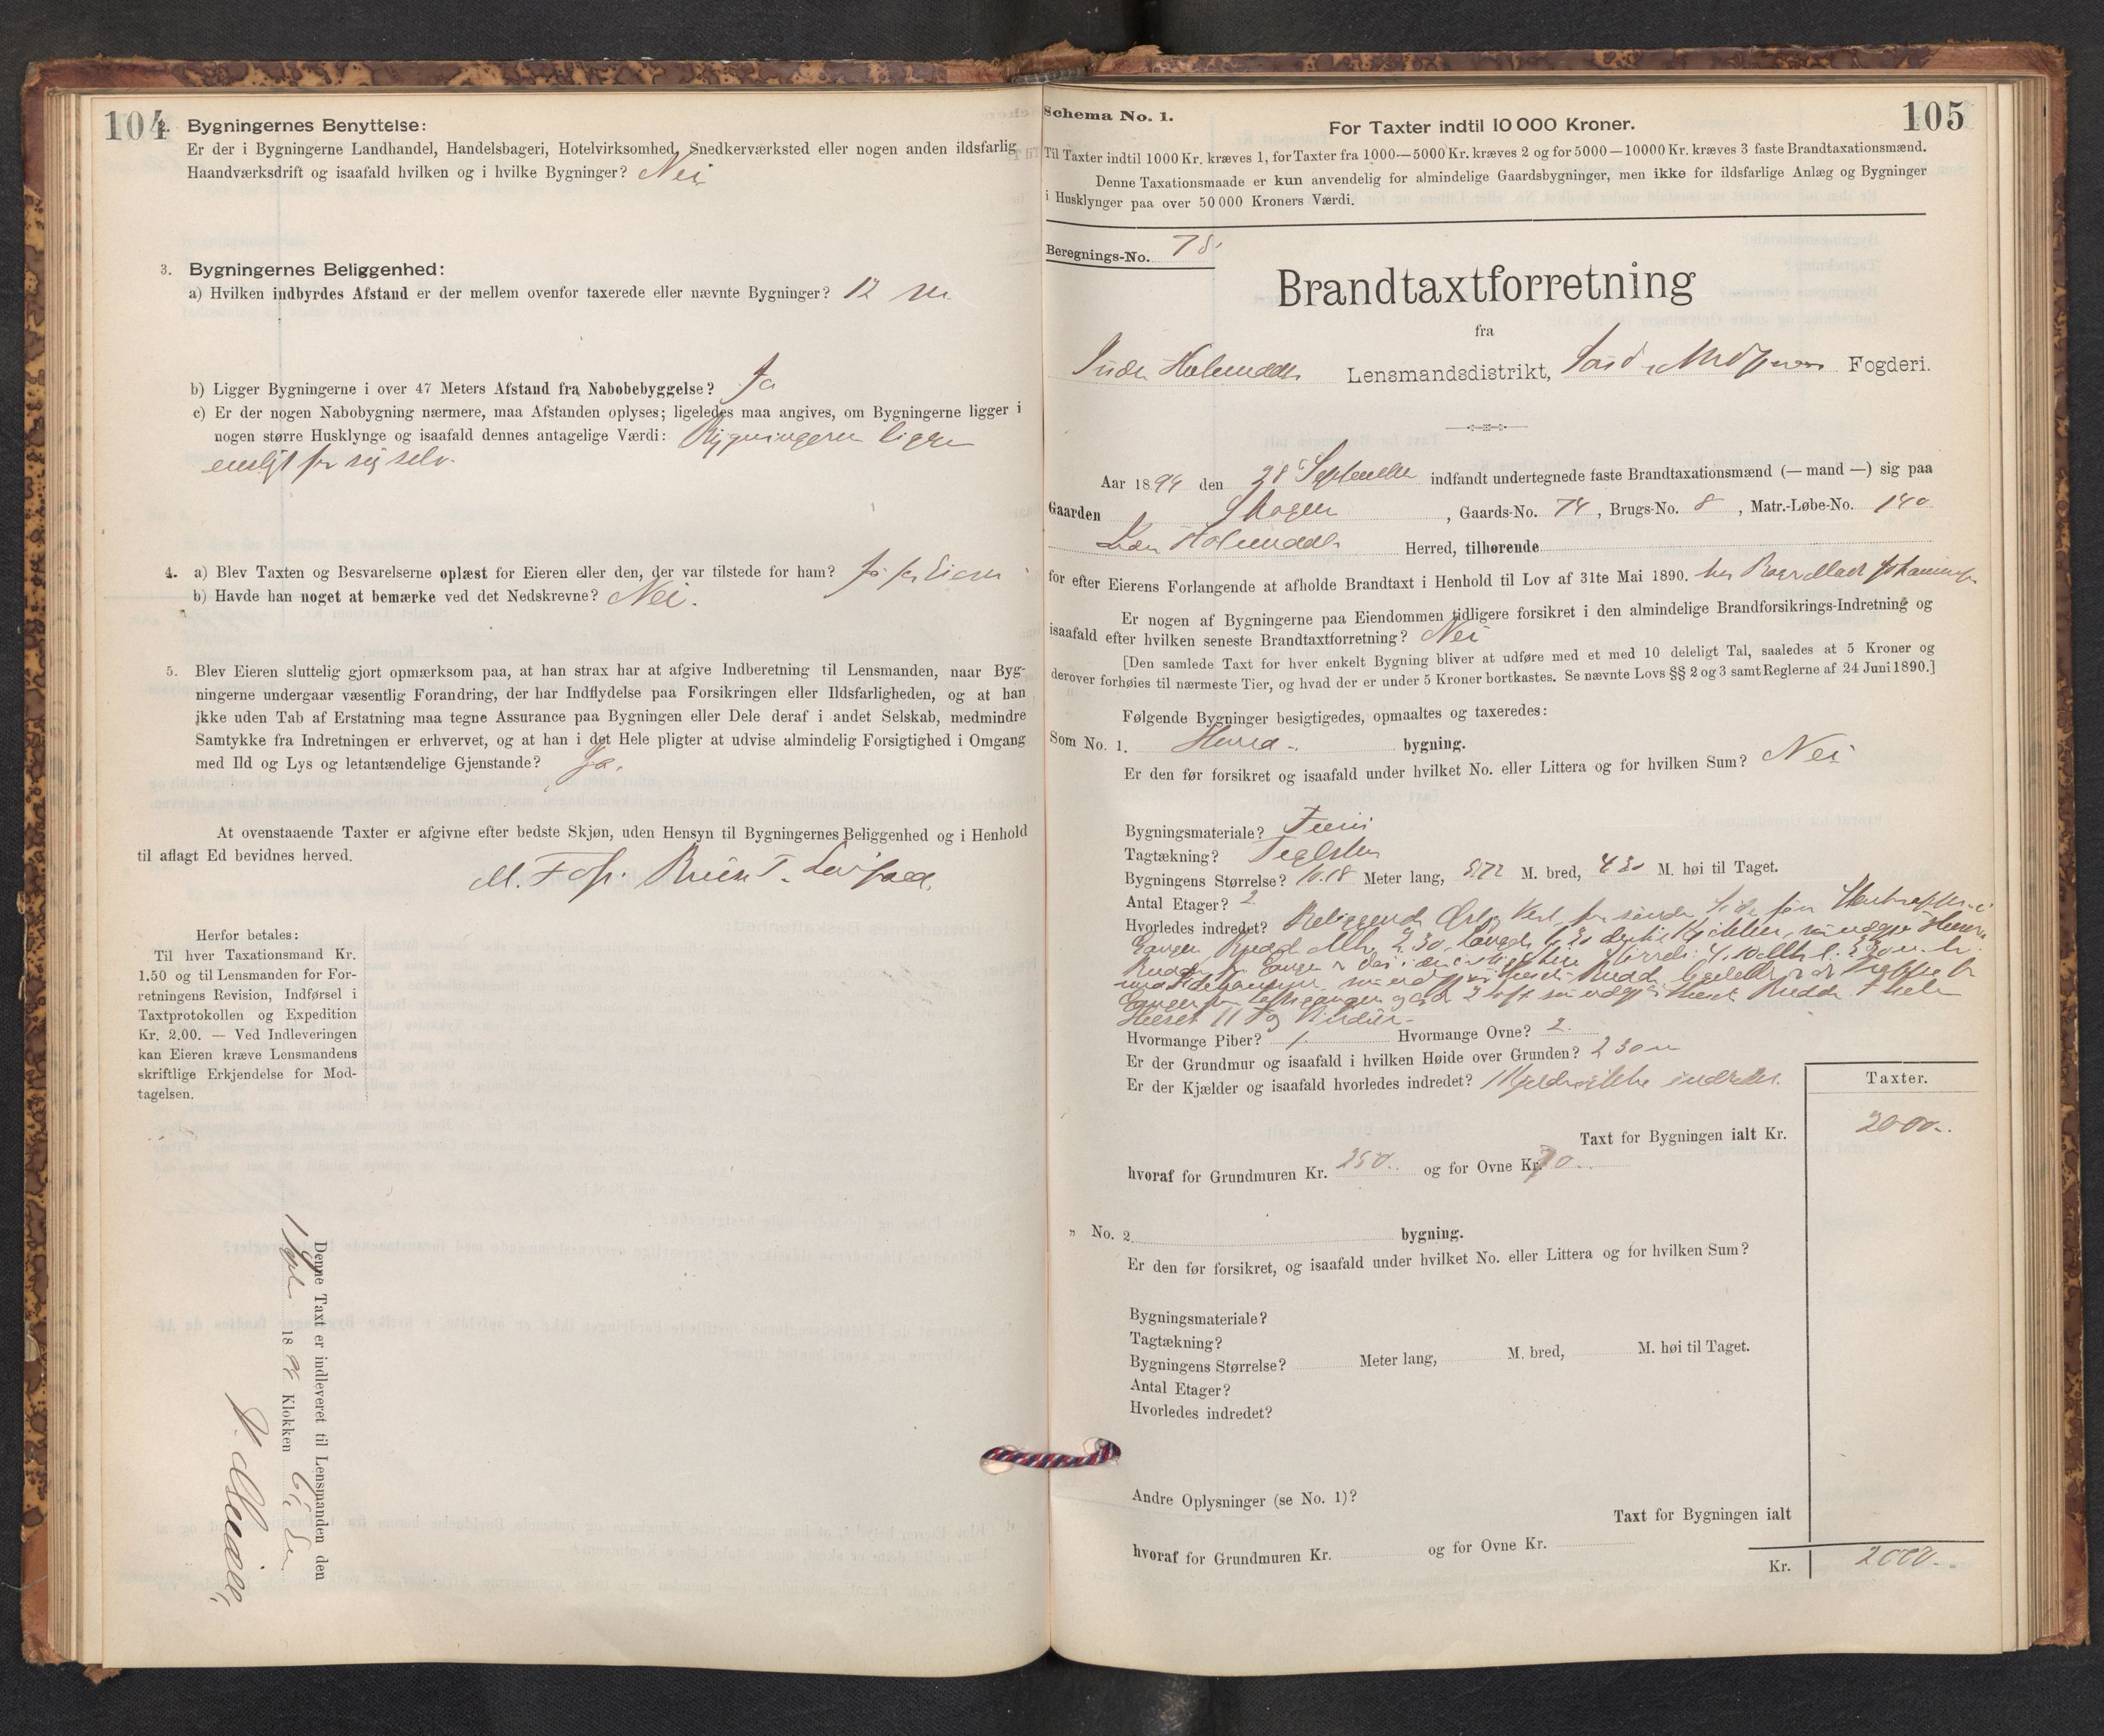 104
2. Bygningernes Benyttelse:
Er der i Bygningerne Landhandel, Handelsbageri, Hotelvirksomhed, Snedkerværksted eller nogen anden ildsfarlig
Haandværksdrift og isaafald hvilken og i hvilke Bygninger? Nei
3. Bygningernes Beliggenhed:
a) Hvilken indbyrdes Afstand er der mellem ovenfor taxerede eller nævnte Bygninger? 12 m
b) Ligger Bygningerne i over 47 Meters Afstand fra Nabobebyggelse? Ja
c) Er der nogen Nabobygning nærmere, maa Afstanden oplyses; ligeledes maa angives, om Bygningerne ligger i
nogen større Husklynge og isaafald dennes antagelige Værdi: Bygningerne ligger
ensligt for sig selv.
4. a) Blev Taxten og Besvarelserne oplæst for Eieren eller den, der var tilstede for ham? Ja for Eieren
b) Havde han noget at bemærke ved det Nedskrevne? Nei.
5. Blev Eieren sluttelig gjort opmærksom paa, at han strax har at afgive Indberetning til Lensmanden, naar Byg-
ningerne undergaar væsentlig Forandring, der har Indflydelse paa Forsikringen eller Ildsfarligheden, og at han
ikke uden Tab af Erstatning maa tegne Assurance paa Bygningen eller Dele deraf i andet Selskab, medmindre
Samtykke fra Indretningen er erhvervet, og at han i det Hele pligter at udvise almindelig Forsigtighed i Omgang
med Ild og Lys og letantændelige Gjenstande? Ja.
At ovenstaaende Taxter er afgivne efter bedste Skjøn, uden Hensyn til Bygningernes Beliggenhed og i Henhold
til aflagt Ed bevidnes herved.
Herfor betales:
Til hver Taxationsmand Kr.
1.50 og til Lensmanden for For-
retningens Revision, Indførsel i
Taxtprotokollen og Expedition
Kr. 2.00. — Ved Indleveringen
kan Eieren kræve Lensmandens
skriftlige Erkjendelse for Mod-
tagelsen.
Denne Taxt er indleveret til Lensmanden den
18 94 Klokken
105
Schema No. 1.
For Taxter indtil 10 000 Kroner.
Til Taxter indtil 1000 Kr. kræves 1, for Taxter fra 1000—5000 Kr. kræves 2 og for 5000—10000 Kr. kræves 3 faste Brandtaxationsmænd.
Denne Taxationsmaade er kun anvendelig for almindelige Gaardsbygninger, men ikke for ildsfarlige Anlæg og Bygninger
i Husklynger paa over 50 000 Kroners Værdi.
Beregnings-No. 78
Brandtaxtforretning
fra
Indre Holmedals Lensmandsdistrikt, Fogderi.
Aar 1894 den 28 September indfandt undertegnede faste Brandtaxationsmænd (— mand —) sig paa
Gaarden Skogen, Gaards-No. 74, Brugs-No. 8, Matr.-Løbe-No. 140
Indre Holmedals Herred, tilhørende
for efter Eierens Forlangende at afholde Brandtaxt i Henhold til Lov af 31te Mai 1890.
Er nogen af Bygningerne paa Eiendommen tidligere forsikret i den almindelige Brandforsikrings-Indretning og
isaafald efter hvilken seneste Brandtaxtforretning? Nei
[Den samlede Taxt for hver enkelt Bygning bliver at udføre med et med 10 deleligt Tal, saaledes at 5 Kroner og
derover forhøies til nærmeste Tier, og hvad der er under 5 Kroner bortkastes. Se nævnte Lovs §§ 2 og 3 samt Reglerne af 24 Juni 1890.]
Følgende Bygninger besigtigedes, opmaaltes og taxeredes:
Som No. 1. bygning.
Er den før forsikret og isaafald under hvilket No. eller Littera og for hvilken Sum? Nei
Bygningsmateriale?
Tagtækning? Teglsten
Bygningens Størrelse? 10.18 Meter lang, M. bred, 4 30 M. høi til Taget.
Antal Etager? 2
Hvorledes indredet? Beliggende
Hvormange Piber? 1 Hvormange Ovne? 2.
Er der Grundmur og isaafald i hvilken Høide over Grunden? 2 30 m
Er der Kjælder og isaafald hvorledes indredet? 1 Kjelder ikke indredet.
Taxter.
Taxt for Bygningen ialt Kr. 2000.
hvoraf for Grundmuren Kr. 250. og for Ovne Kr.
" No. 2 bygning.
Er den før forsikret, og isaafald under hvilket No. eller Littera og for hvilken Sum?
Bygningsmateriale?
Tagtækning?
Bygningens Størrelse? Meter lang, M. bred, M. høi til Taget.
Antal Etager?
Hvorledes indredet?
Andre Oplysninger (se No. 1)?
Taxt for Bygningen ialt
hvoraf for Grundmuren Kr. og for Ovne Kr.
Kr. 2000.